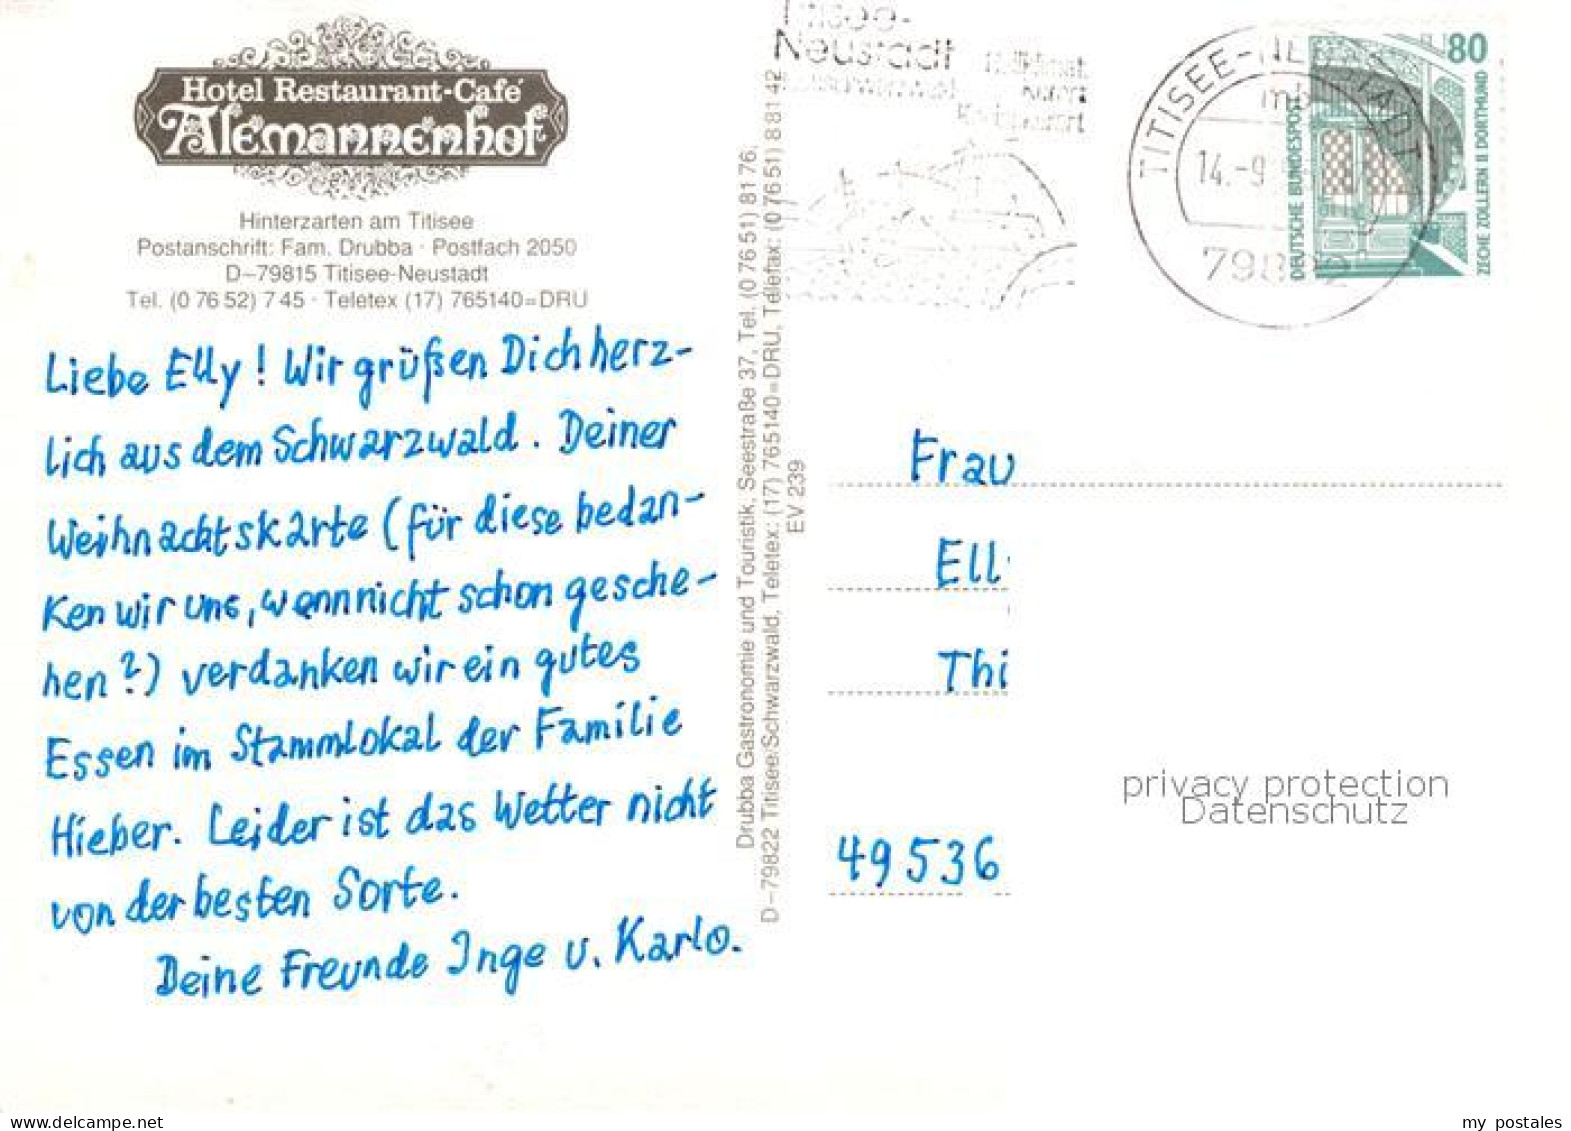 Hotel Restaurant-Café
Alemannenhof
Hinterzarten am Titisee
Postanschrift: Fam. Drubba · Postfach 2050
D–79815 Titisee-Neustadt
Tel. (0 76 52) 7 45 · Teletex (17) 765140=DRU
Liebe Elly! Wir grüßen Dich herz-
lich aus dem Schwarzwald. Deiner
Weihnachtskarte (für diese bedan-
ken wir uns, wenn nicht schon gesche-
hen?) verdanken wir ein gutes
Essen im Stammlokal der Familie
Hieber. Leider ist das Wetter nicht
von der besten Sorte.
Deine Freunde Inge u. Karlo.
Drubba Gastronomie und Touristik, Seestraße 37, Tel. (0 76 51) 81 76,
D–79822 Titisee/Schwarzwald, Teletex: (17) 765140=DRU, Telefax: (0 76 51) 8 81 42
EV 239
Titisee-
Neustadt
TITISEE-NEUSTADT
mb
14.-9
79822
80
DEUTSCHE BUNDESPOST
ZECHE ZOLLERN II DORTMUND
Frau
Ell
Thi
49536
privacy protection
Datenschutz
my postales